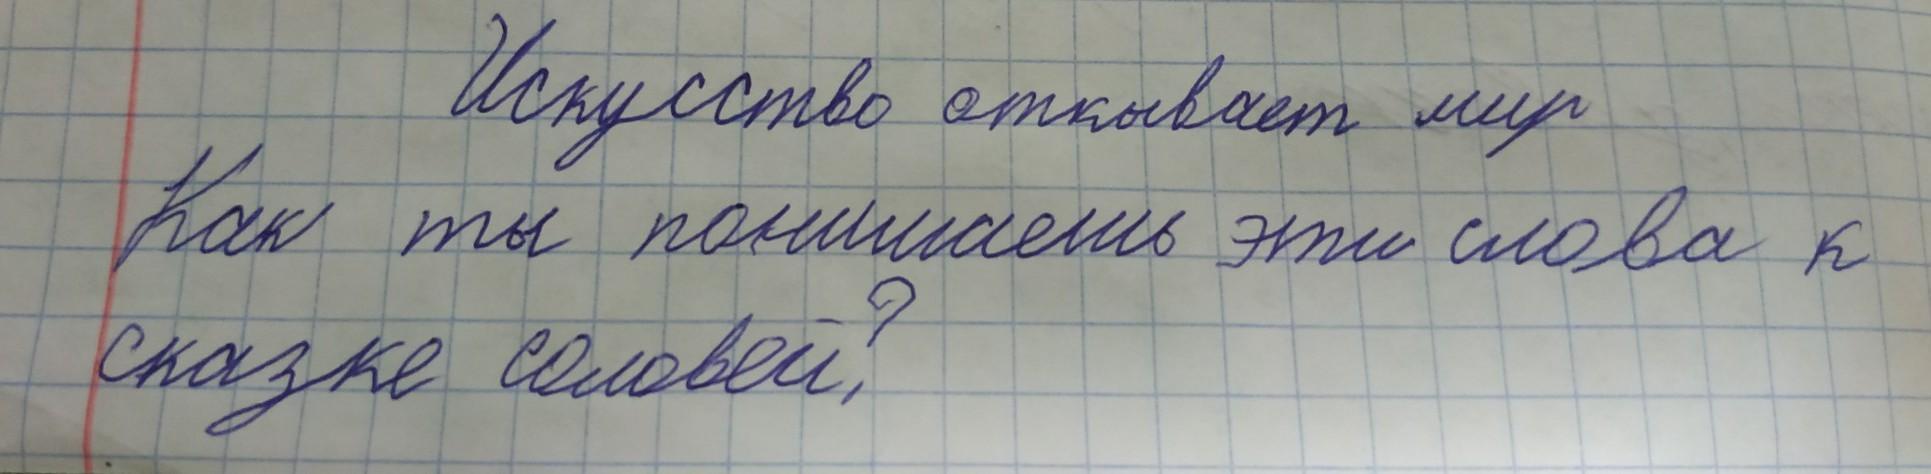 Искусство откывает мир
Как ты понимаешь эти слова к
сказке соловей?